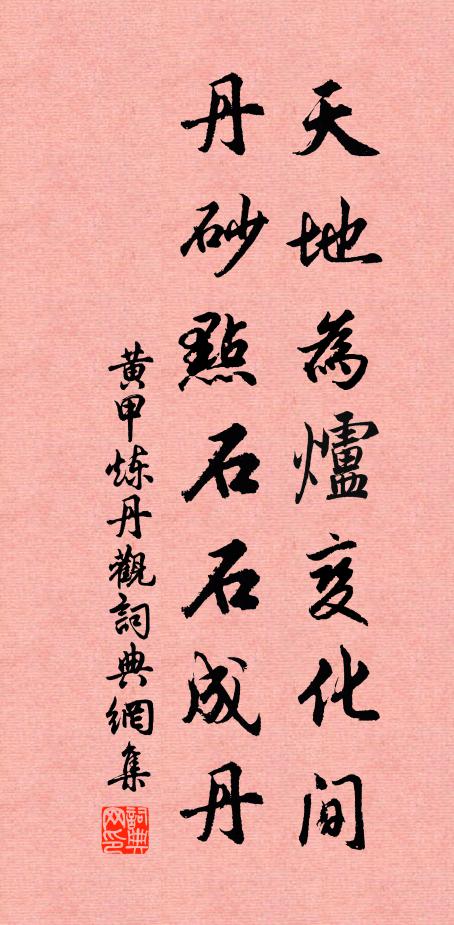 天地為爐变化間
丹砂點石石成丹
黄甲炼丹觀詞典網集
詞典网印